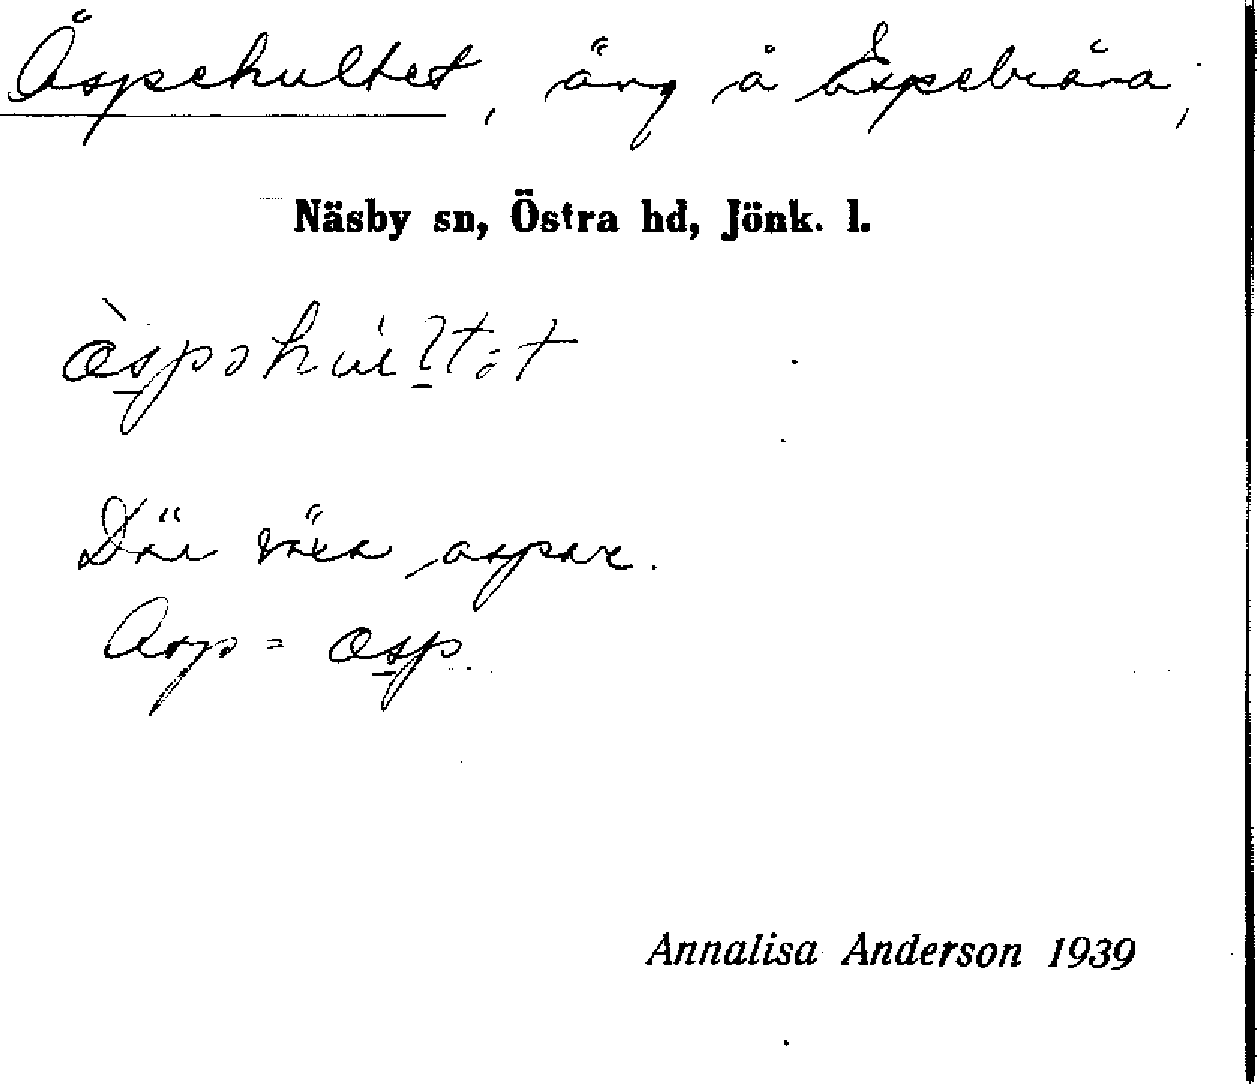 Äspehultet, äng å Espebråna,
Näsby sn, Östra hd, Jönk. l.
Där växa aspar.
Asp = æsp.
Annalisa Anderson 1939